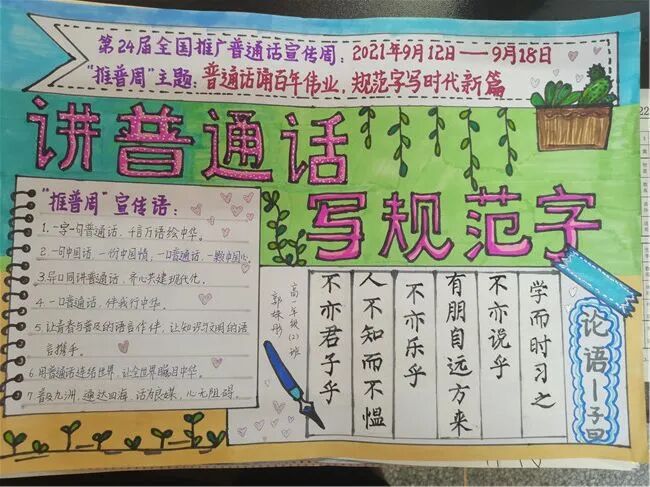 第24届全国推广普通话宣传周：2021年9月12日——9月18日
"推普周"主题：普通话诵百年伟业，规范字写时代新篇
讲普通话
写规范字
"推普周"宣传语：
1.一字一句普通话，千言万语绘中华。
2.一句中国话，一份中国情，一口普通话，一颗中国心。
3.异口同声讲普通话，齐心共建现代化。
4.一口普通话，伴我行中华。
5.让青春与普及的语言作伴，让知识与文明的语
言携手。
6.用普通话连结世界，让全世界瞩目中华。
7.普及九洲，通达四海，话为良媒，心无阻碍。
高一年级(2)班
郭姝彤
论语—子曰
学而时习之
不亦说乎
有朋自远方来
不亦乐乎
人不知而不愠
不亦君子乎